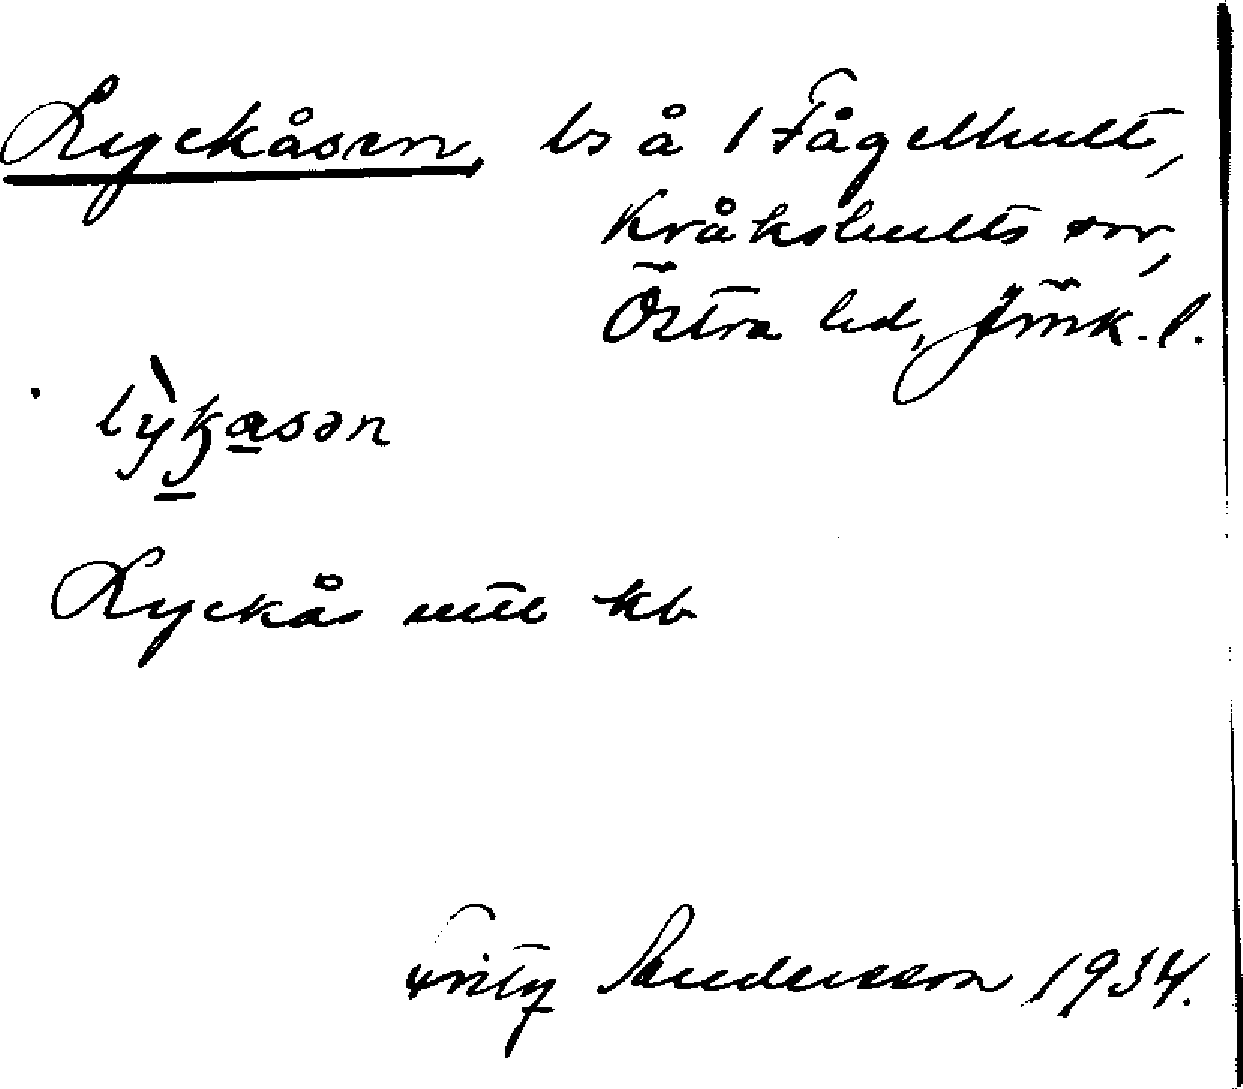 Lyckåsen, ls å 1 Fågelhult,
Kråkshults sn,
Östra hd, Jönk. l.
lỳkasən
Lyckås kb
Fritz Andersson 1934.